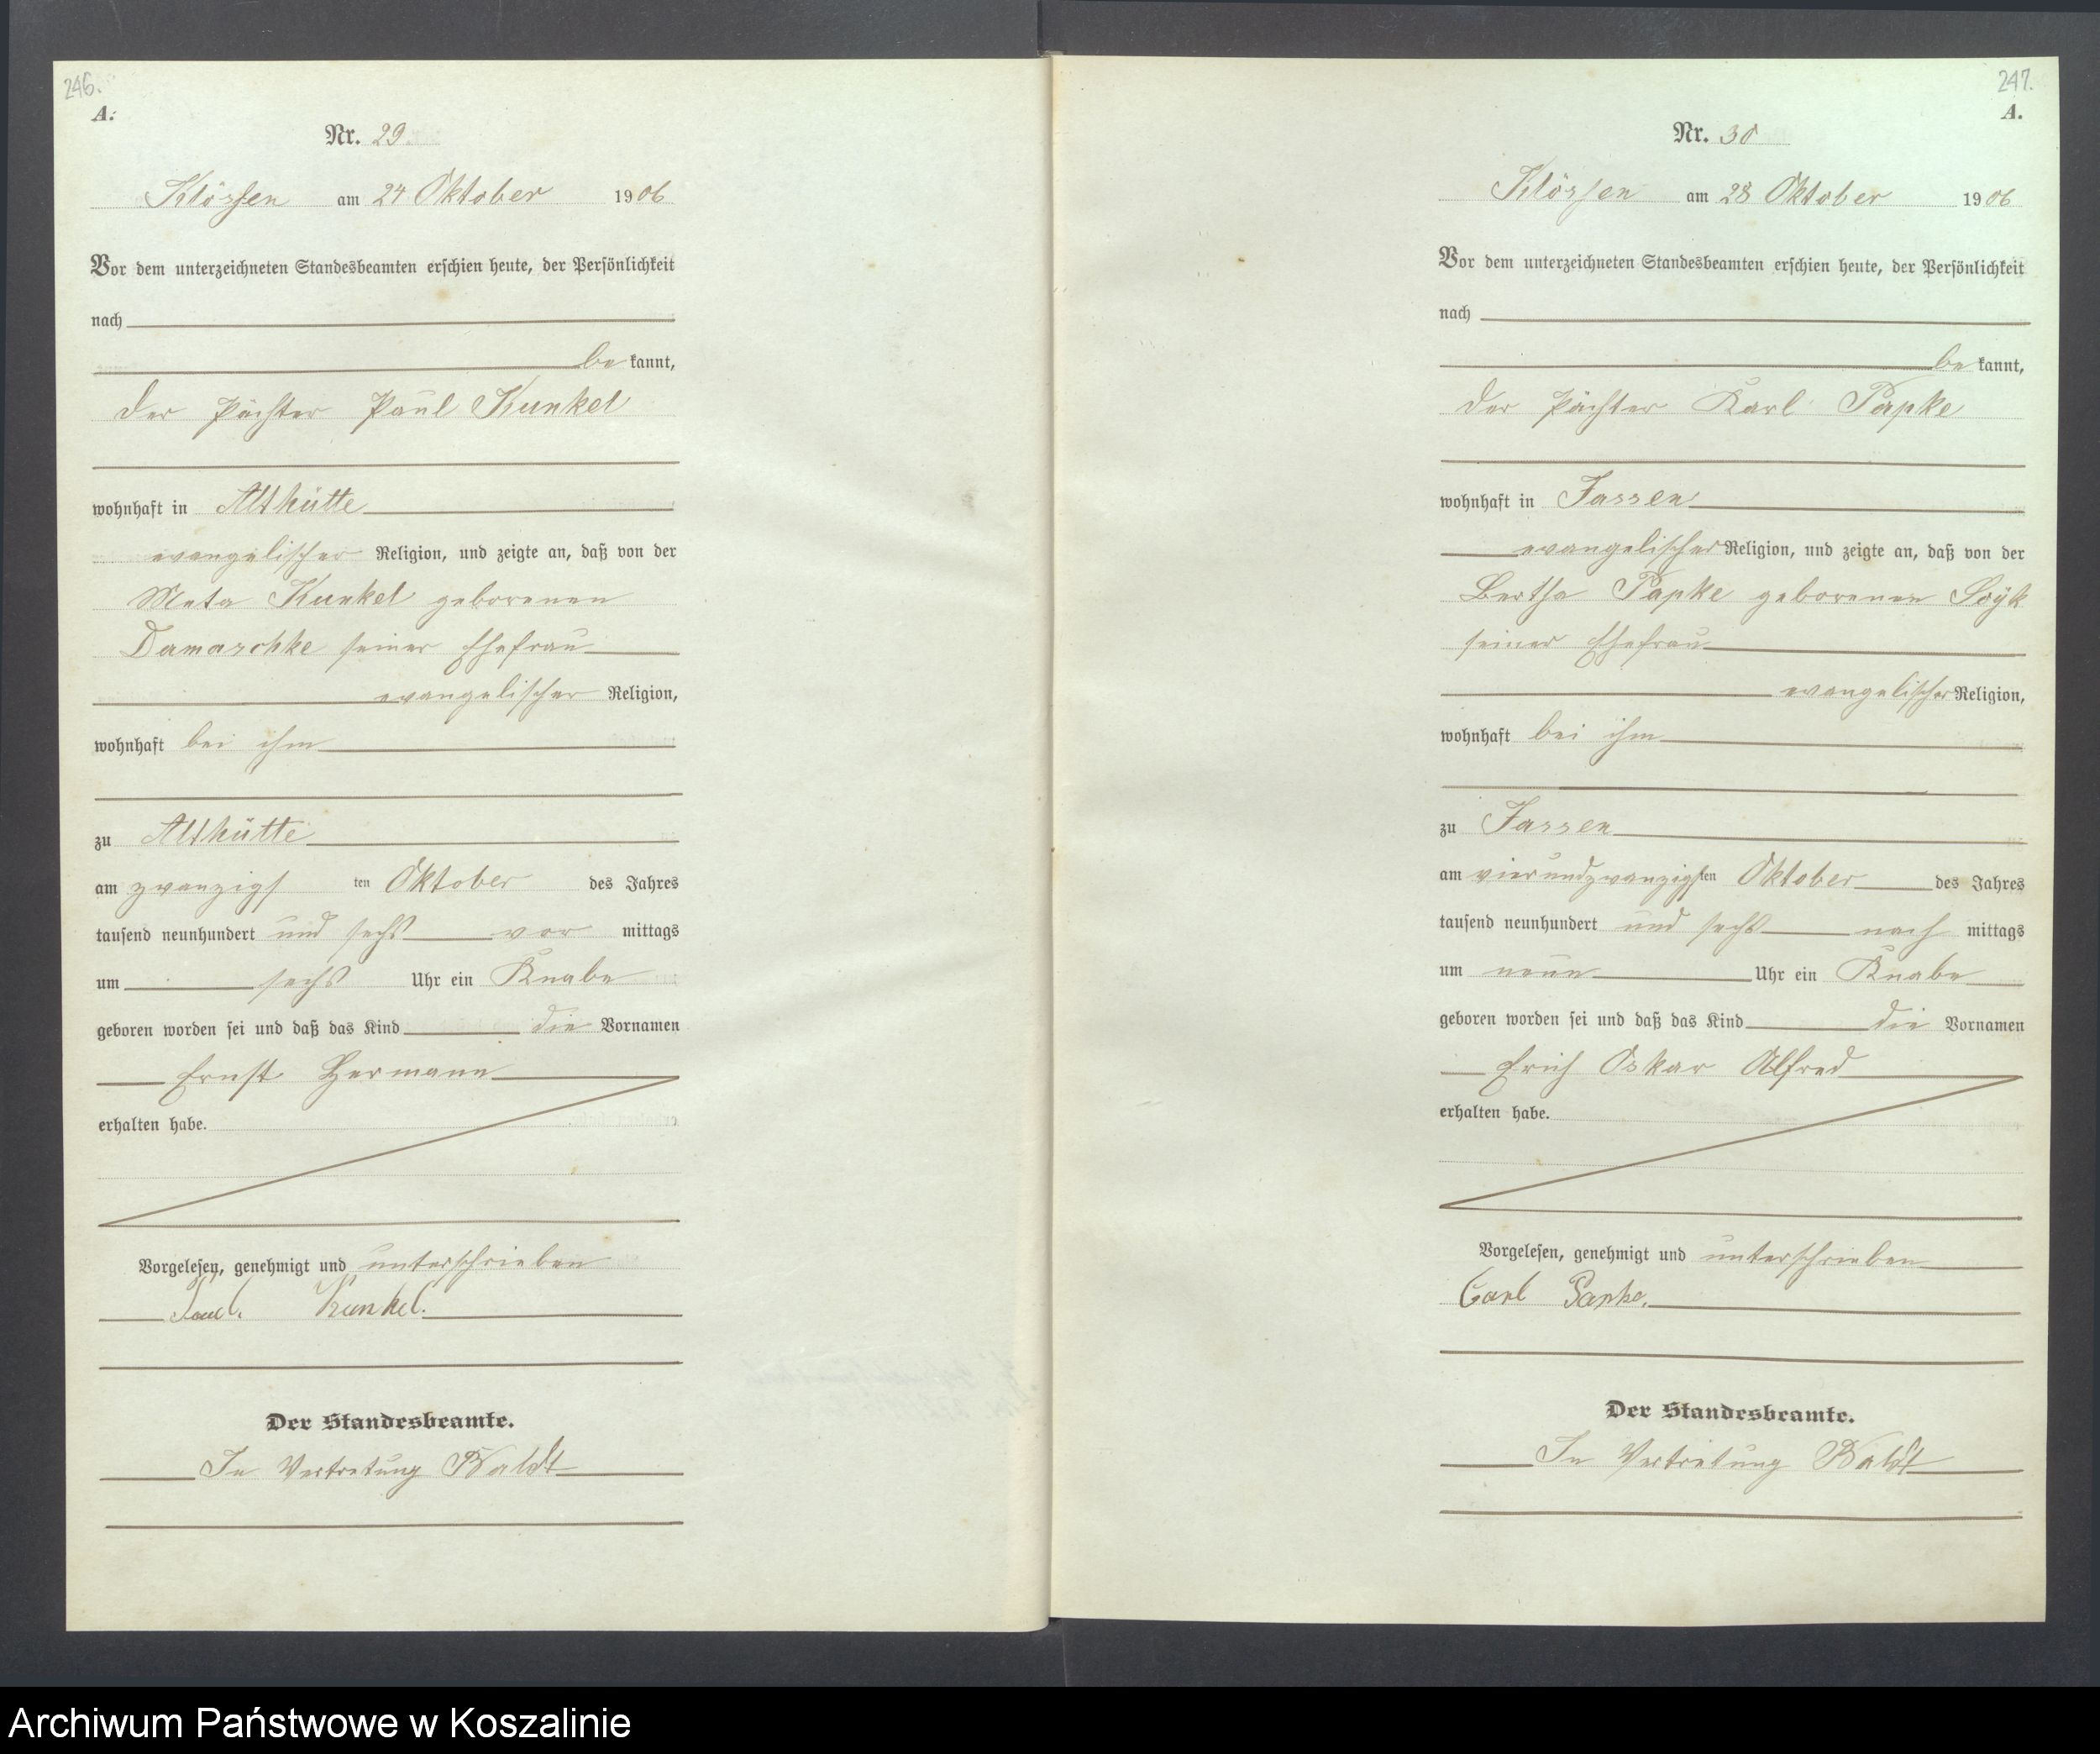 246.
A.
Nr. 29.
Klössen am 24 Oktober 1906
Vor dem unterzeichneten Standesbeamten erschien heute, der Persönlichkeit
nach
be kannt,
der Pächter Paul Kunkel
wohnhaft in Althütte
evangelischer Religion, und zeigte an, daß von der
Meta Kunkel geborenen
Damaschke seiner Ehefrau
evangelischer Religion,
wohnhaft bei ihm
zu Althütte
am zwanzigsten Oktober des Jahres
tausend neunhundert und sechs vor mittags
um sechs Uhr ein Knabe
geboren worden sei und daß das Kind die Vornamen
Ernst Hermann
erhalten habe.
Vorgelesen, genehmigt und unterschrieben
Paul Kunkel.
Der Standesbeamte.
In Vertretung Waldt
247.
A.
Nr. 30
Klössen am 28 Oktober 1906
Vor dem unterzeichneten Standesbeamten erschien heute, der Persönlichkeit
nach
be kannt,
der Pächter Karl Papke
wohnhaft in Jassen
evangelischer Religion, und zeigte an, daß von der
Bertha Papke geborenen Soyk
seiner Ehefrau
evangelischer Religion,
wohnhaft bei ihm
zu Jassen
am vierundzwanzigsten Oktober des Jahres
tausend neunhundert und sechs nach mittags
um neun Uhr ein Knabe
geboren worden sei und daß das Kind die Vornamen
Erich Oskar Alfred
erhalten habe.
Vorgelesen, genehmigt und unterschrieben
Carl Papke.
Der Standesbeamte.
In Vertretung Waldt
Archiwum Państwowe w Koszalinie